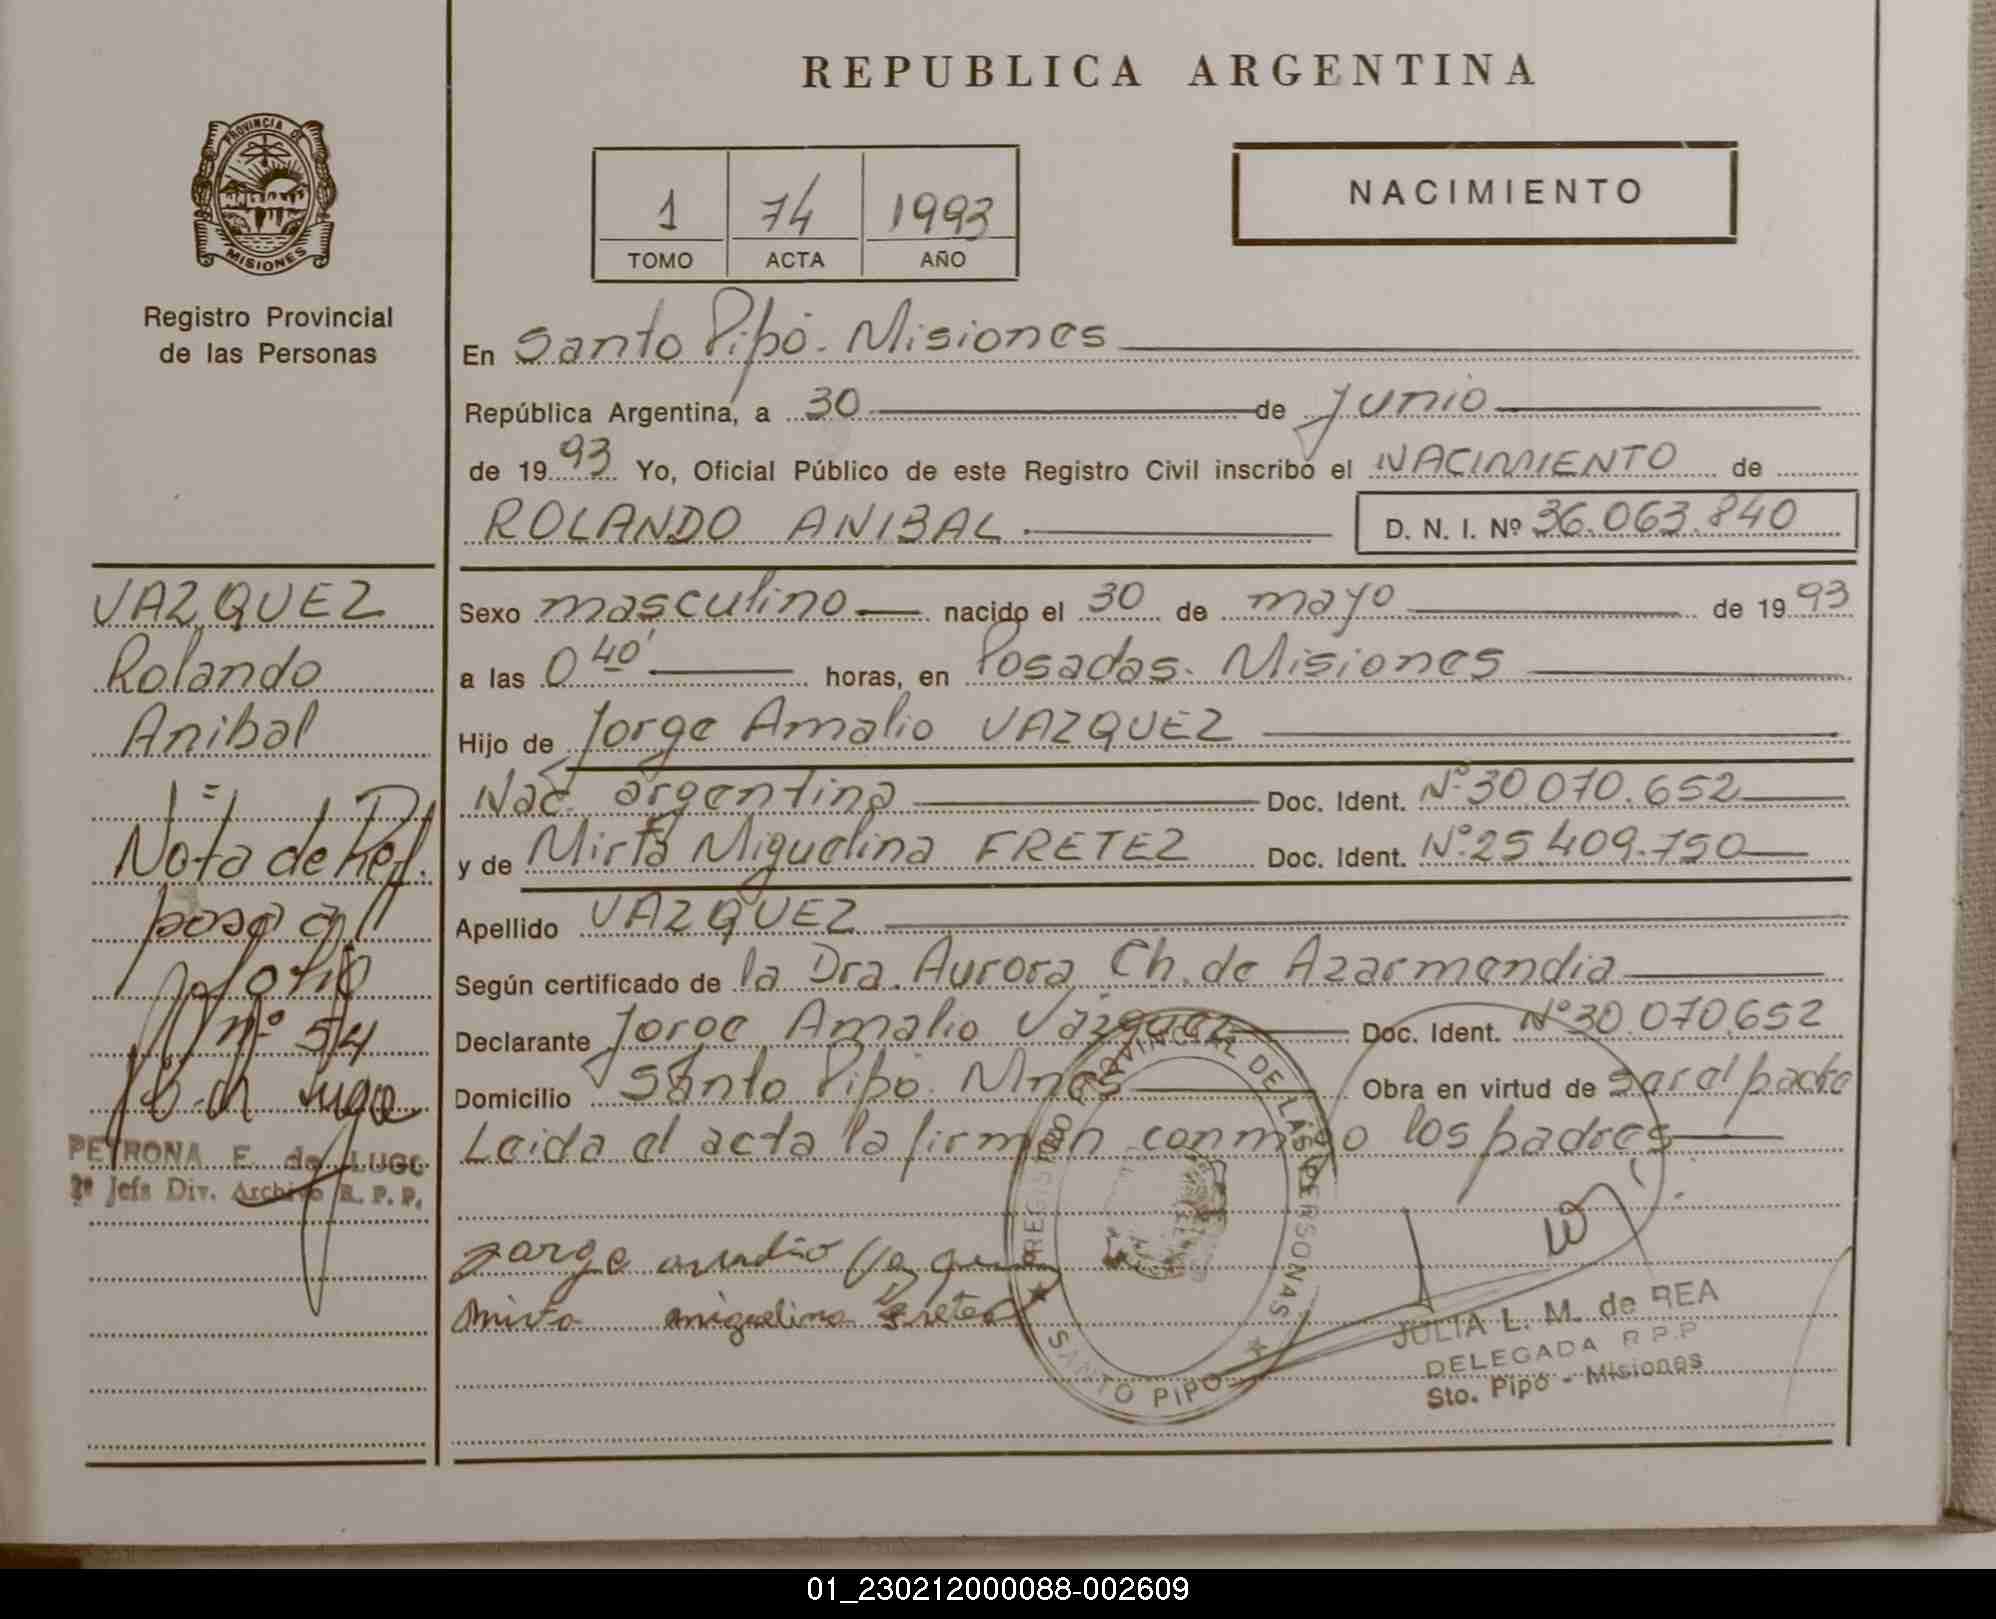 REPUBLICA ARGENTINA
PROVINCIA DE
MISIONES
Registro Provincial
de las Personas
1 74 1993
TOMO ACTA AÑO
NACIMIENTO
En Santo Pipó. Misiones
República Argentina, a 30 de Junio
de 1993 Yo, Oficial Público de este Registro Civil inscribo el NACIMIENTO de
ROLANDO ANIBAL D. N. I. Nº 36.063.840
VAZQUEZ
Rolando
Anibal
Nota de Ref.
pasa al
folio
nº 54
PETRONA E. de LUGO
2º Jefe Div. Archivo R. P. P.
Sexo masculino nacido el 30 de mayo de 1993
a las 0 40' horas, en Posadas. Misiones
Hijo de Jorge Amalio VAZQUEZ
Nac. argentina Doc. Ident. Nº 30.070.652
y de Mirta Miguelina FRETEZ Doc. Ident. Nº 25.409.750
Apellido VAZQUEZ
Según certificado de la Dra. Aurora Ch. de Azarmendia
Declarante Jorge Amalio Vázquez Doc. Ident. Nº 30.070.652
Domicilio Santo Pipó. Mnes Obra en virtud de ser el padre
Leida el acta la firman conmigo los padres
REGISTRO PROVINCIAL DE LAS PERSONAS
SANTO PIPO
mirta miguelina Fretez
JULIA L. M. de REA
DELEGADA R.P.P.
Sto. Pipó - Misiones
01_230212000088-002609